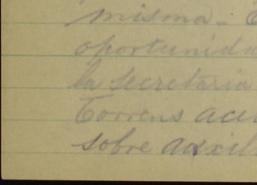 misma.- 
oportunida
la Secretaria
Torrens acu
sobre auxil